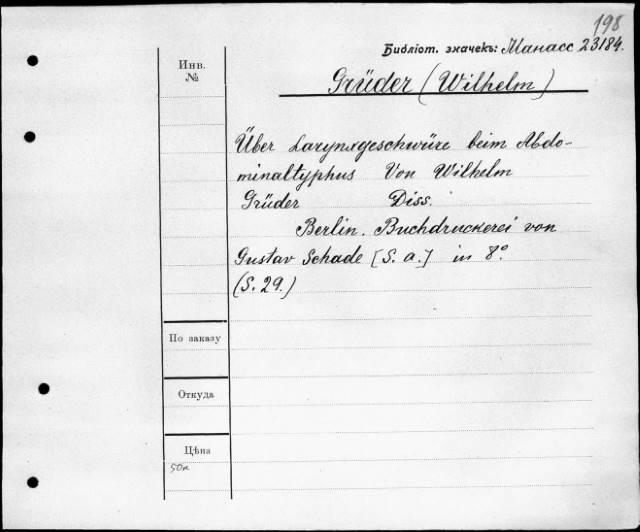 198
Библіот. значекъ: Манасс 23184.
Инв.
№
Grüder (Wilhelm)
Über Larynxgeschwüre beim Abdo-
minaltyphus Von Wilhelm
Grüder Diss.
Berlin. Buchdruckerei von
Gustav Schade [S. a.] in 8°
(S. 29.)
По заказу
Откуда
Цѣна
50к